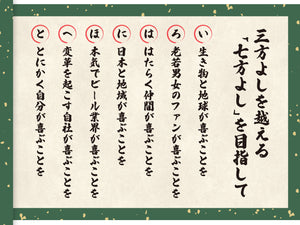 三方よしを越える
「七方よし」を目指して
い 生き物と地球が喜ぶことを
ろ 老若男女のファンが喜ぶことを
は はたらく仲間が喜ぶことを
に 日本と地域が喜ぶことを
ほ 本気でビール業界が喜ぶことを
へ 変革を起こす自社が喜ぶことを
と とにかく自分が喜ぶことを